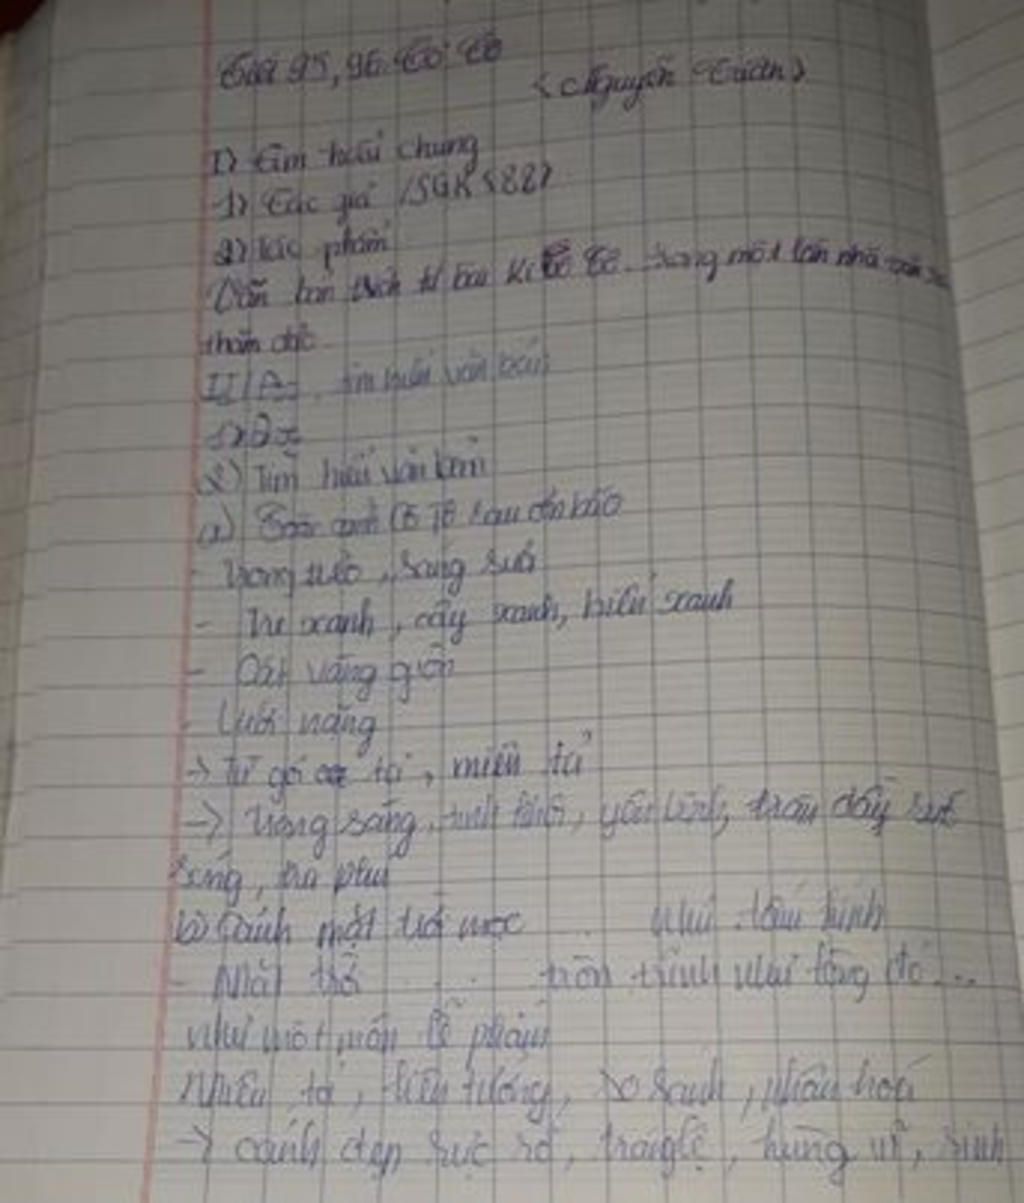 Tiết 95, 96. Cô Tô
(Nguyễn Tuân)
I) Tìm hiểu chung
1) Tác giả (SGK
2) Tác phẩm
Văn bản trích từ bài kí Cô Tô trong một lần nhà văn
thăm đảo
II/ tìm hiểu văn bản
1)
2) Tìm hiểu văn bản
a) cảnh Cô Tô sau cơn bão
- Trong trẻo, sáng sủa
- xanh, cây xanh, biển xanh
- Cát vàng giòn
- Lưới nặng
-> Từ gợi tả, miêu tả
-> Trong sáng, tinh khôi, yên bình, tràn đầy sức
sống, trù phú
b) Cảnh mặt trời mọc như tấm kính
- Mặt trời ... tròn trĩnh như lòng đỏ ...
như một mâm lễ phẩm
Miêu tả, liên tưởng, so sánh, nhân hoá
-> cảnh đẹp rực rỡ, tráng lệ, hùng vĩ, sinh